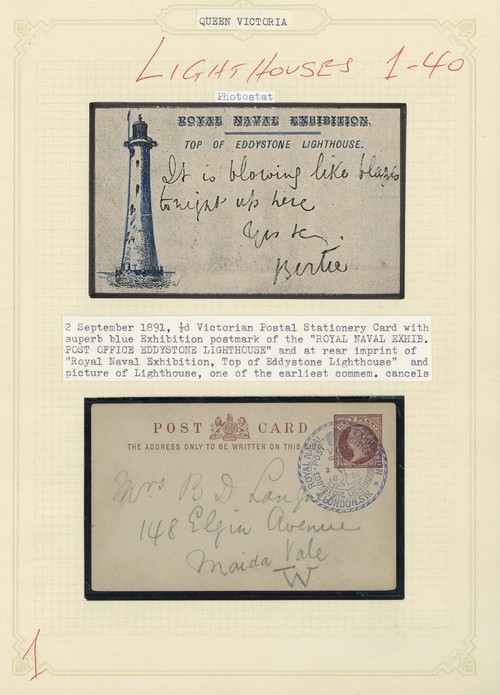 QUEEN VICTORIA
LIGHTHOUSES 1-40
Photostat
ROYAL NAVAL EXHIBITION.
TOP OF EDDYSTONE LIGHTHOUSE.
It is blowing like blazes
tonight up here
Bertie
2 September 1891, ½d Victorian Postal Stationery Card with
superb blue Exhibition postmark of the "ROYAL NAVAL EXHIB.
POST OFFICE EDDYSTONE LIGHTHOUSE" and at rear imprint of
"Royal Naval Exhibition, Top of Eddystone Lighthouse" and
picture of Lighthouse, one of the earliest commem. cancels
POST CARD
THE ADDRESS ONLY TO BE WRITTEN ON THIS SIDE
HALF PENNY
ROYAL NAVAL
LONDON.S.W.
Mrs B D
148 Elgin Avenue
Maida Vale
W
1